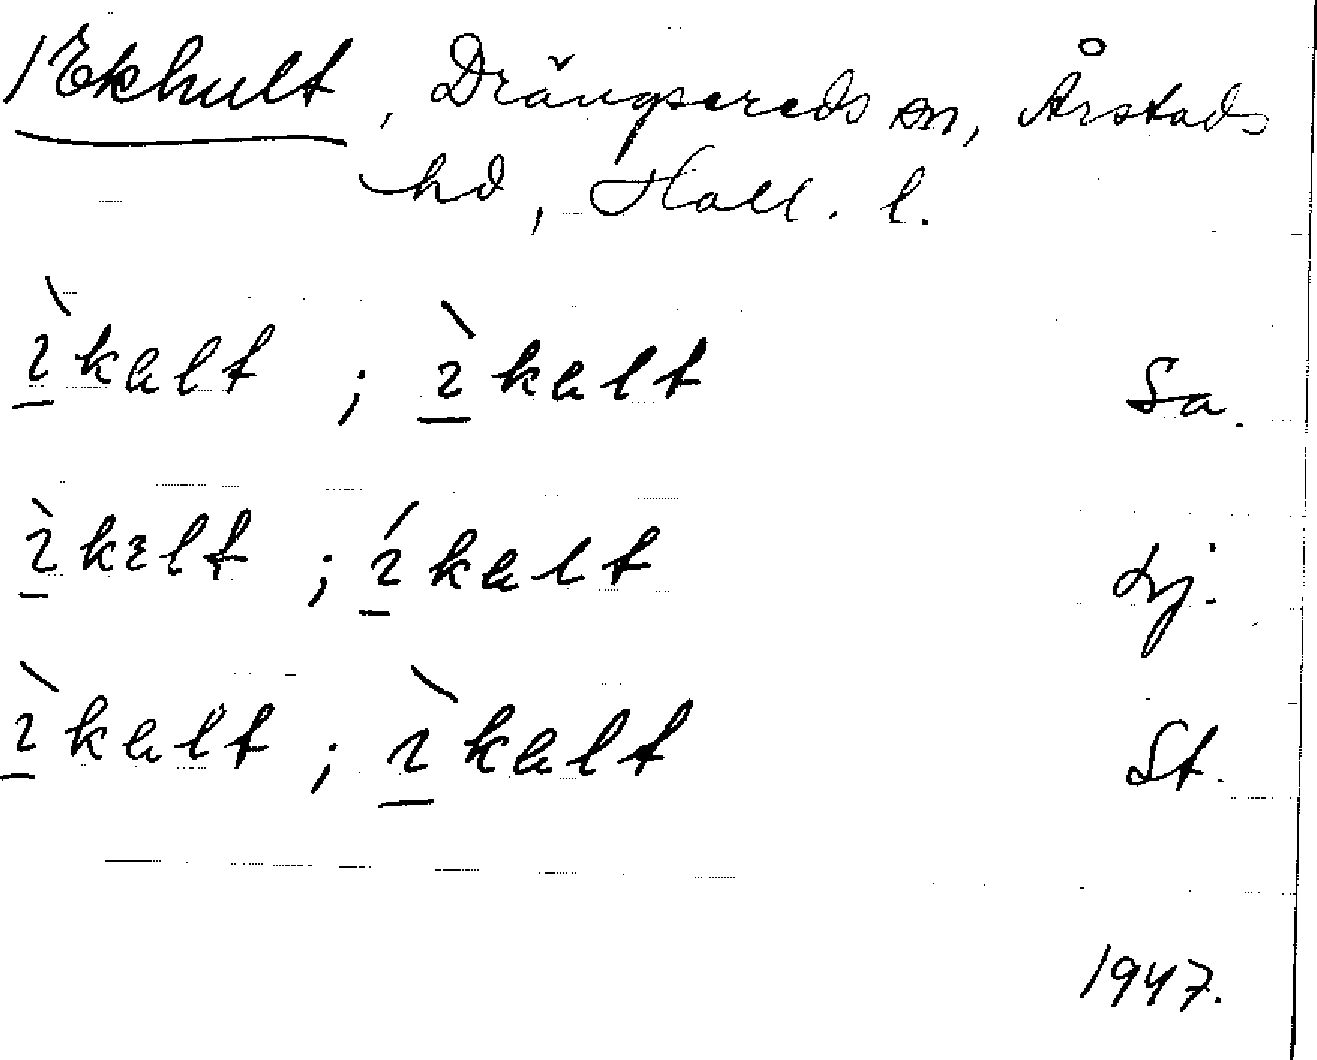 1 Ekhult, Drängsereds sn, Årstads
hd, Hall. l.
ɩ̲̀kɐlt ; ɩ̲̀kɐlt Sa.
ɩ̲̀kɛlt ; ɩ̲́kɐlt Lj.
ɩ̲̀kɐlt ; ɩ̲̀kɐlt St.
1947.